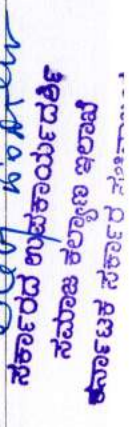 ಸರ್ಕಾರದ ಉಪಕಾರ್ಯದರ್ಶಿ
ಸಮಾಜ ಕಲ್ಯಾಣ ಇಲಾಖೆ
ಕರ್ನಾಟಕ ಸರ್ಕಾರ